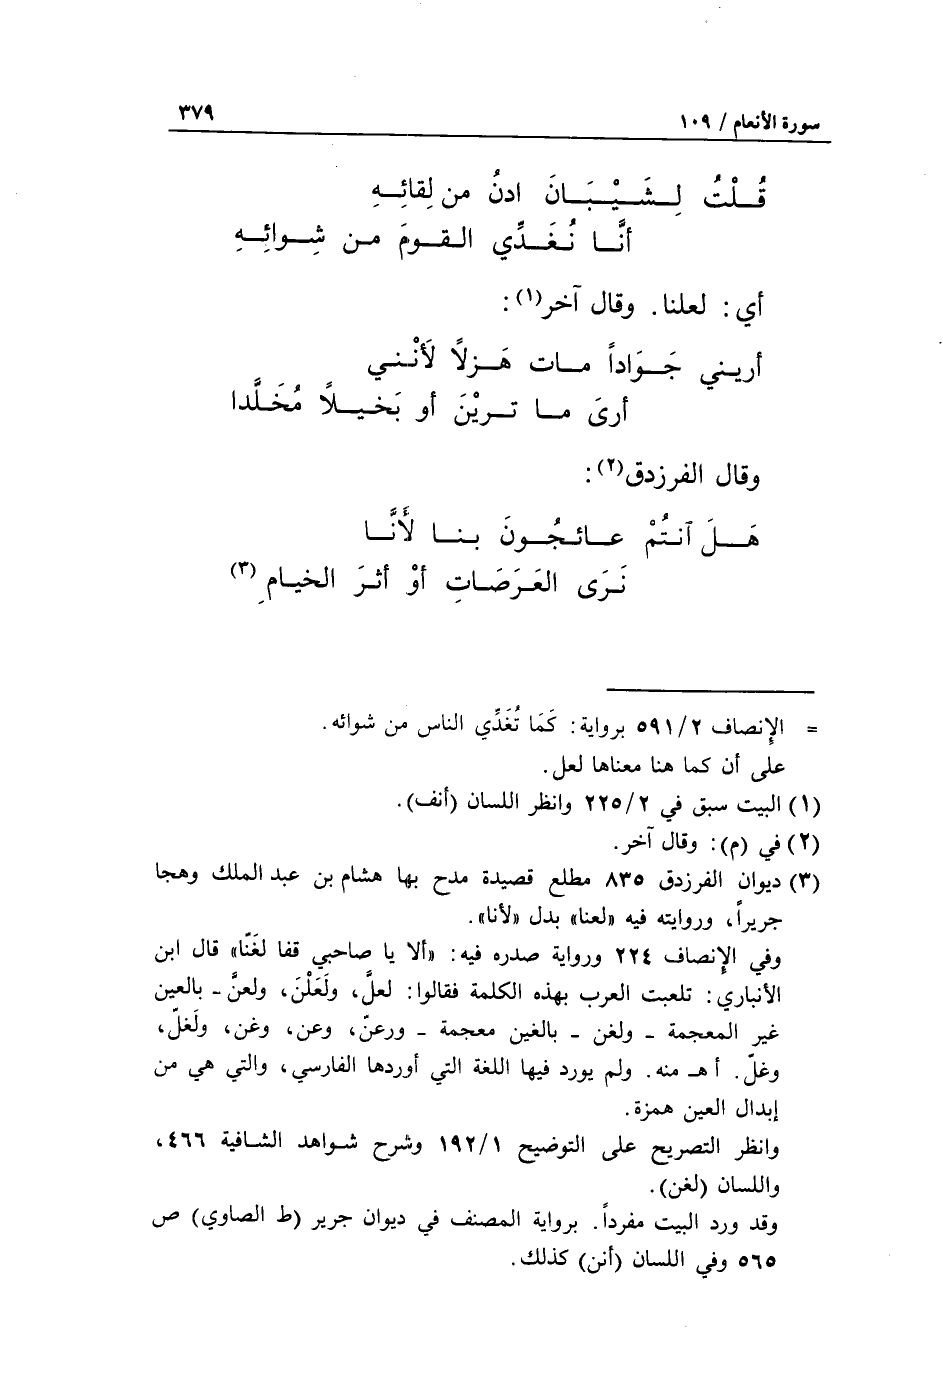 سورة الأنعام / ١٠٩
٣٧٩
قُـلْتُ لِـشَـيْـبَـانَ ادنُ من لِقائِـهِ
أنَّـا نُـغَـدِّي القـومَ مـن شِـوائِـهِ
أي: لعلنا. وقال آخر(١):
أريـني جَـوَاداً مـات هَـزلًا لَأنْـني
أرىَ مـا تـريْنَ أو بَخيـلًا مُخَلَّدا
وقال الفرزدق(٢):
هَـلَ آنـتُمْ عـائـجُـونَ بـنـا لأَنَّـا
نَـرَى العَـرَصَـاتِ أوْ أثـرَ الخيـامِ (٣)
= الإنصاف ٥٩١/٢ برواية: كَمَا تُغَدِّي الناس من شوائه.
على أن كما هنا معناها لعل.
(١) البيت سبق في ٢٢٥/٢ وانظر اللسان (أنف).
(٢) في (م): وقال آخر.
(٣) ديوان الفرزدق ٨٣٥ مطلع قصيدة مدح بها هشام بن عبد الملك وهجا
جريراً، وروايته فيه «لعنا» بدل «لأنا».
وفي الإنصاف ٢٢٤ ورواية صدره فيه: «ألا يا صاحبي قفا لغَنّا» قال ابن
الأنباري: تلعبت العرب بهذه الكلمة فقالوا: لعلَّ، ولَعَلْنَ، ولعنَّ - بالعين
غير المعجمة - ولغن - بالغين معجمة - ورعنّ، وعن، وغن، ولَغلّ،
وغلّ. أ هـ منه. ولم يورد فيها اللغة التي أوردها الفارسي، والتي هي من
إبدال العين همزة.
وانظر التصريح على التوضيح ١٩٢/١ وشرح شواهد الشافية ٤٦٦،
واللسان (لغن).
وقد ورد البيت مفرداً. برواية المصنف في ديوان جرير (ط الصاوي) ص
٥٦٥ وفي اللسان (أنن) كذلك.